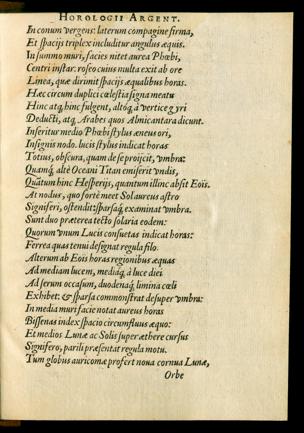 HOROLOGII ARGENT.
In conum vergens: laterum compagine firma,
Et spacijs triplex includitur angulus æquis.
In summo muri, facies nitet aurea Phœbi,
Centri instar: roseo cuius multa exit ab ore
Linea, quæ dirimit spacijs æqualibus horas.
Hæc circum duplici cælestia signa meatu
Hinc atq; hinc fulgent, altoq; à vertice gyri
Deducti, atq; Arabes quos Almicantara dicunt.
Inseritur medio Phœbi stylus æneus ori,
Insignis nodo. lucis stylus indicat horas
Totius, obscura, quam de se projcit, vmbra:
Quamq; altè Oceani Titan emiserit vndis,
Quãtum hinc Hesperijs, quantum illinc absit Eois.
At nodus, quo fortè meet Sol aureus astro
Signiferi, ostendit: sparsaq; examinat vmbra.
Sunt duo præterea tecto solaria eodem:
Quorum vnum Lucis consuetas indicat horas:
Ferrea quas tenui designat regula filo.
Alterum ab Eois horas regionibus æquas
Ad mediam lucem, mediaq; à luce diei
Ad serum occasum, duodenaq; limina cœli
Exhibet: & sparsa commonstrat desuper vmbra.
In media muri facie notat aureus horas
Bissenas index spacio circumfluus æquo:
Et medios Lunæ ac Solis super æthere cursus
Signifero, parili præsentat regula motu.
Tum globus auricomæ profert noua cornua Lunæ,
Orbe